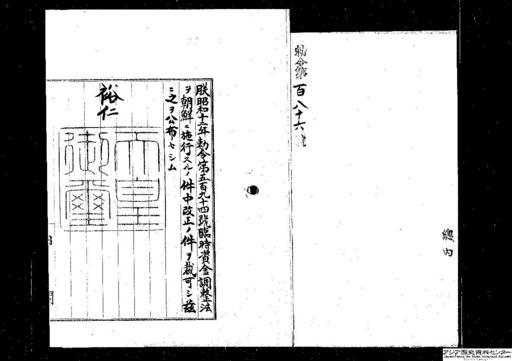 勅令第百八十六號
總内
朕昭和十二年勅令第五百九十四號臨時資金調整法
ヲ朝鮮ニ施行スルノ件中改正ノ件ヲ裁可シ茲
ニ之ヲ公布セシム
裕仁
天皇
御璽
アジア歴史資料センター